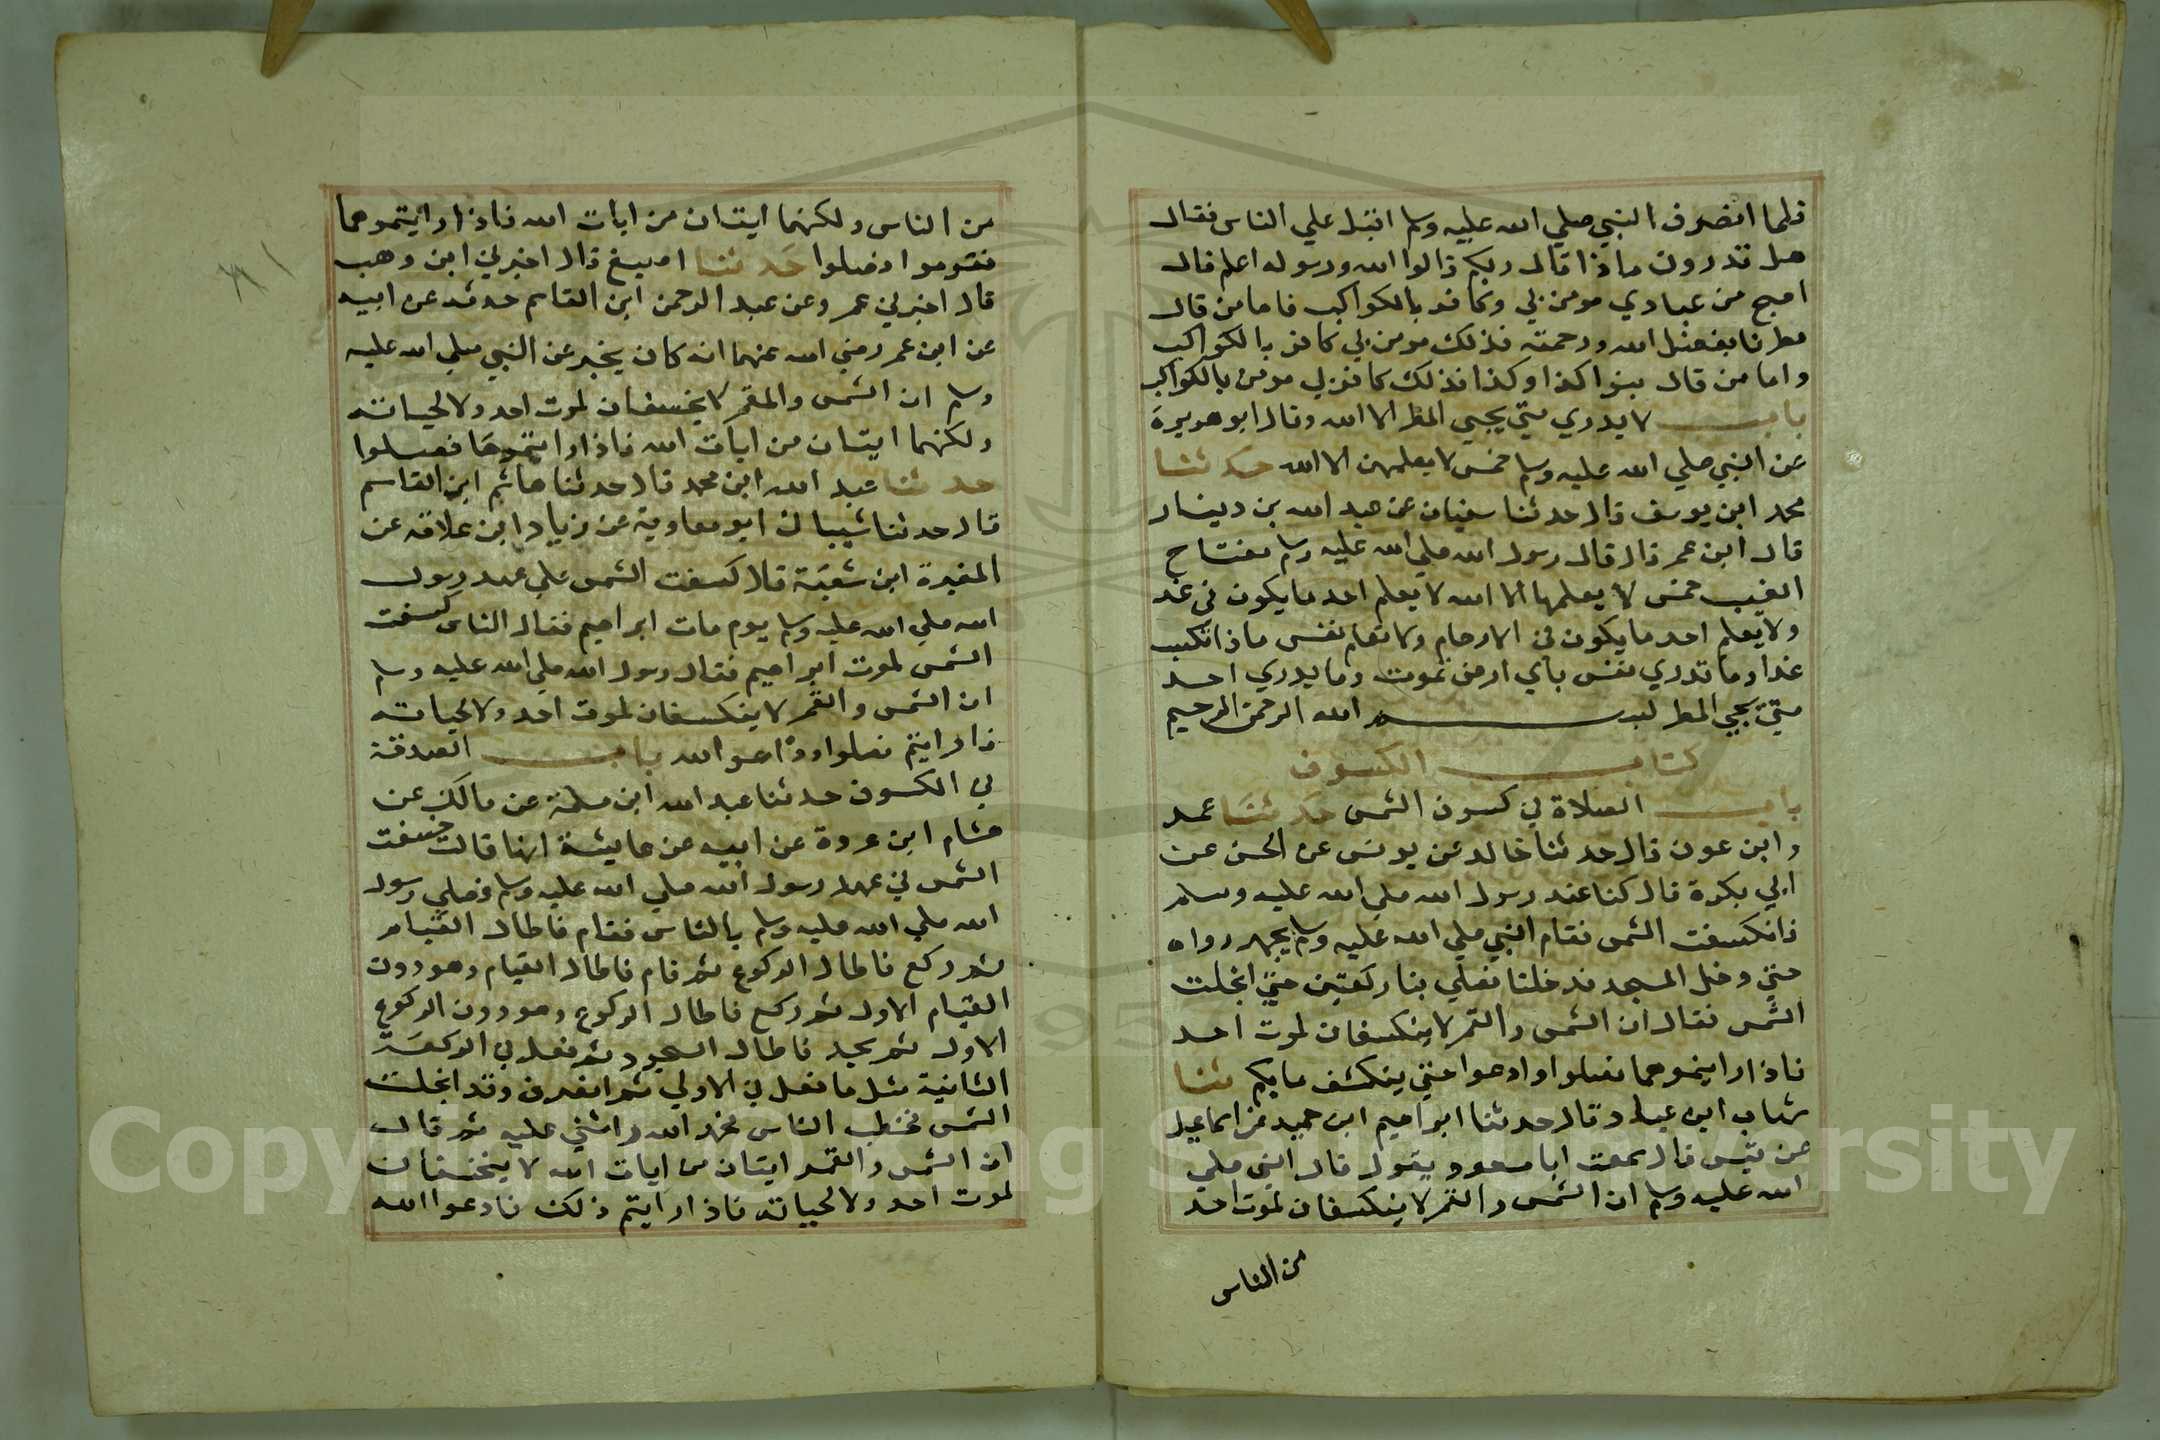 فلما انصرف النبي صلي الله عليه وسلم اقبل علي الناس فقال
هل تدرون ماذا قال ربكم قالوا الله ورسوله اعلم قال
اصبح من عبادي مومن بي وكافر بالكواكب فاما من قال
مطرنا بفضل الله ورحمته فذلك مومن بي كافر بالكواكب
واما من قال بنوا كذا وكذا فذلك كافر بي مومن بالكواكب
باب لا يدري متي يجيي المطر الا الله وقال ابو هريرة
عن النبي صلي الله عليه وسلم خمس لا يعلمهن الا الله حدثنا
محمد ابن يوسف قال حدثنا سفيان عن عبد الله بن دينار
قال ابن عمر قال قال رسول الله صلي الله عليه وسلم مفتاح
الغيب خمس لا يعلمها الا الله لا يعلم احد ما يكون في غد
ولا يعلم احد ما يكون في الارحام ولا تعلم نفس ماذا تكسب
غدا وما تدري نفس باي ارض تموت وما يدري احد
متي يجيي المطر بسم الله الرحمن الرحيم
كتاب الكسوف
باب الصلاة في كسوف الشمس حدثنا عمد
وابن عون قال حدثنا خالد عن يونس عن الحسن عن
ابي بكرة قال كنا عند رسول الله صلي الله عليه وسلم
فانكسفت الشمس فقام النبي صلي الله عليه وسلم يجر رداه
حتي دخل المسجد فدخلنا فصلي بنا ركعتين حتي انجلت
الشمس فقال ان الشمس والقمر لا ينكسفان لموت احد
فاذا رايتموهما فصلوا وادعوا حتي ينكشف ما بكم ثنا
شهاب ابن عباد قال حدثنا ابراهيم ابن حميد عن اسماعيل
عن قيس قال سمعت ابا مسعود يقول قال النبي صلي
الله عليه وسلم ان الشمس والقمر لا ينكسفان لموت احد
من الناس
من الناس ولكنهما ايتان من ايات الله فاذا رايتموهما
فقوموا فصلوا حدثنا اصبغ قال اخبرني ابن وهب
قال اخبرني عمرو عن عبد الرحمن ابن القاسم حدثه عن ابيه
عن ابن عمر رضي الله عنهما انه كان يخبر عن النبي صلي الله عليه
وسلم ان الشمس والقمر لا يخسفان لموت احد ولا لحياته
ولكنهما ايتان من ايات الله فاذا رايتموها فصلوا
حدثنا عبد الله ابن محمد قال حدثنا هاشم ابن القاسم
قال حدثنا شيبان ابو معاوية عن زياد ابن علاقه عن
المغيرة ابن شعبة قال كسفت الشمس علي عهد رسول
الله صلي الله عليه وسلم يوم مات ابراهيم فقال الناس كسفت
الشمس لموت ابراهيم فقال رسول الله صلي الله عليه وسلم
ان الشمس والقمر لا ينكسفان لموت احد ولا لحياته
فاذا رايتم فصلوا وادعوا الله باب الصدقة
في الكسوف حدثنا عبد الله ابن مسلمة عن مالك عن
هشام ابن عروة عن ابيه عن عايشة انها قالت خسفت
الشمس في عهد رسول الله صلي الله عليه وسلم فصلي رسول
الله صلي الله عليه وسلم بالناس فقام فاطال القيام
ثم ركع فاطال الركوع ثم قام فاطال القيام وهو دون
القيام الاول ثم ركع فاطال الركوع وهو دون الركوع
الاول ثم سجد فاطال السجود ثم فعل في الركعة
الثانية مثل ما فعل في الاولي ثم انصرف وقد انجلت
الشمس فخطب الناس فحمد الله واثني عليه ثم قال
ان الشمس والقمر ايتان من ايات الله لا ينخسفان
لموت احد ولا لحياته فاذا رايتم ذلك فادعوا الله